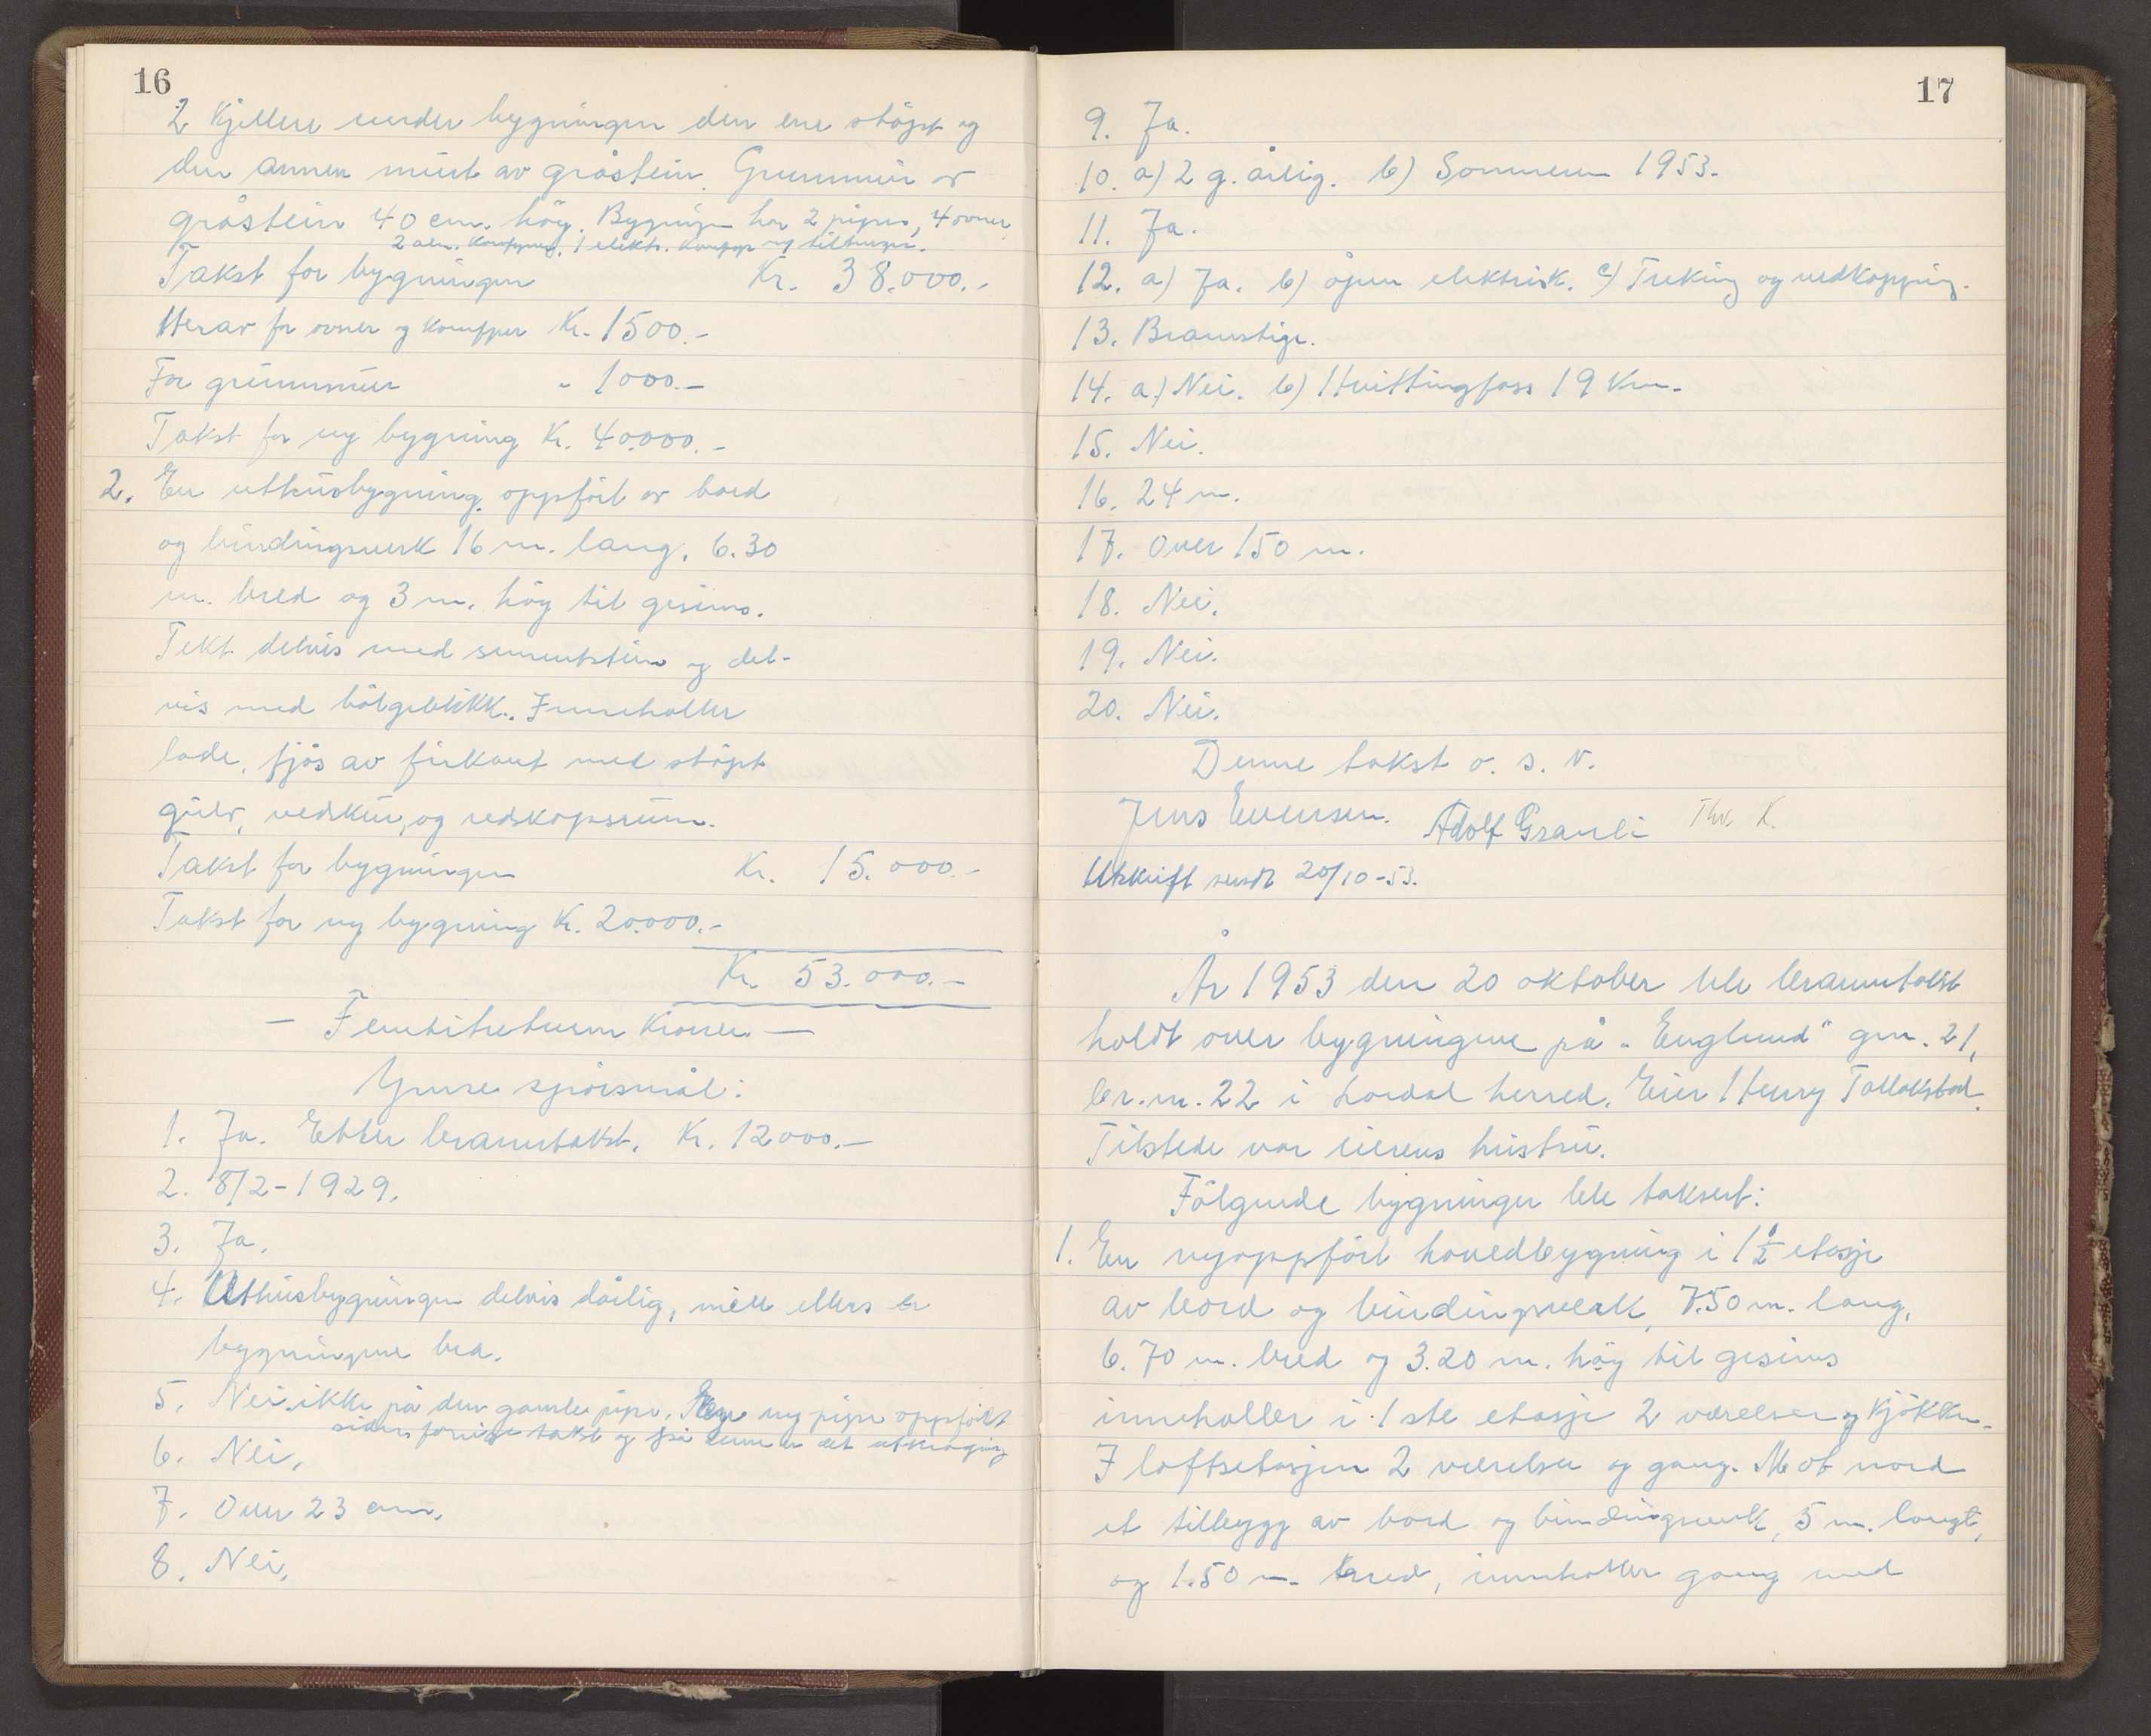 16
2 Kjellere under bygningen den ene støpt og
den annen murt av gråstein. Grunnmur av
gråstein 40 cm. høy. Bygningen har 2 piper, 4 ovner,
2 alm. komfyrer, 1 elektr. komfyr og
Takst for bygningen Kr. 38.000.-
Herav for ovner og komfyrer Kr. 1500.-
For grunnmur " 1000.-
Takst for ny bygning Kr. 40.000.-
2. En uthusbygning oppført av bord
og bindingsverk 16 m. lang, 6.30
m. bred og 3 m. høy til gesims.
Tekt delvis med sementstein og del-
vis med bølgeblikk. Inneholder
lade, fjøs av firkant med støpt
gulv, vedskur, og redskapsrum.
Takst for bygningen Kr. 15.000.-
Takst for ny bygning Kr. 20.000.-
Kr. 53.000.-
- Femtitretusen Kroner -
Ymse spørsmål:
1. Ja. Etter branntakst. Kr. 12000.-
2. 8/2-1929.
3. Ja.
4. Uthusbygningen delvis dårlig, men ellers er
bygningene bra.
5. Nei, ikke på den gamle pipe. ny pipe oppført
siden forrige takst og på denne er det utkraging
6. Nei.
7. Over 23 cm.
8. Nei.
17
9. Ja.
10. a) 2 g. årlig. b) Sommeren 1953.
11. Ja.
12. a) Ja. b) åpen elektrisk. c) Treking og vedkapping.
13. Brannstige.
14. a) Nei. b) Hvittingfoss 19 Km.
15. Nei.
16. 24 m.
17. Over 150 m.
18. Nei.
19. Nei.
20. Nei.
Denne takst o. s. v.
Jens Evensen. Adolf Granli Thv. K.
Utskrift sendt 20/10-53.
År 1953 den 20 oktober ble branntakst
holdt over bygningene på "Englund" gnr. 21,
br.nr. 22 i Lardal herred. Eier Henry Tallakstad.
Tilstede var eierens hustru.
Følgende bygninger ble taksert:
1. En nyoppført hovedbygning i 1 1/2 etasje
av bord og bindingsverk, 7.50 m. lang,
6.70 m. bred og 3.20 m. høy til gesims
inneholder i 1ste etasje 2 værelser og kjøkken.
I loftsetasjen 2 værelser og gang. Mot nord
et tilbygg av bord og bindingsverk, 5 m. langt,
og 1.50 m. bred, inneholder gang med